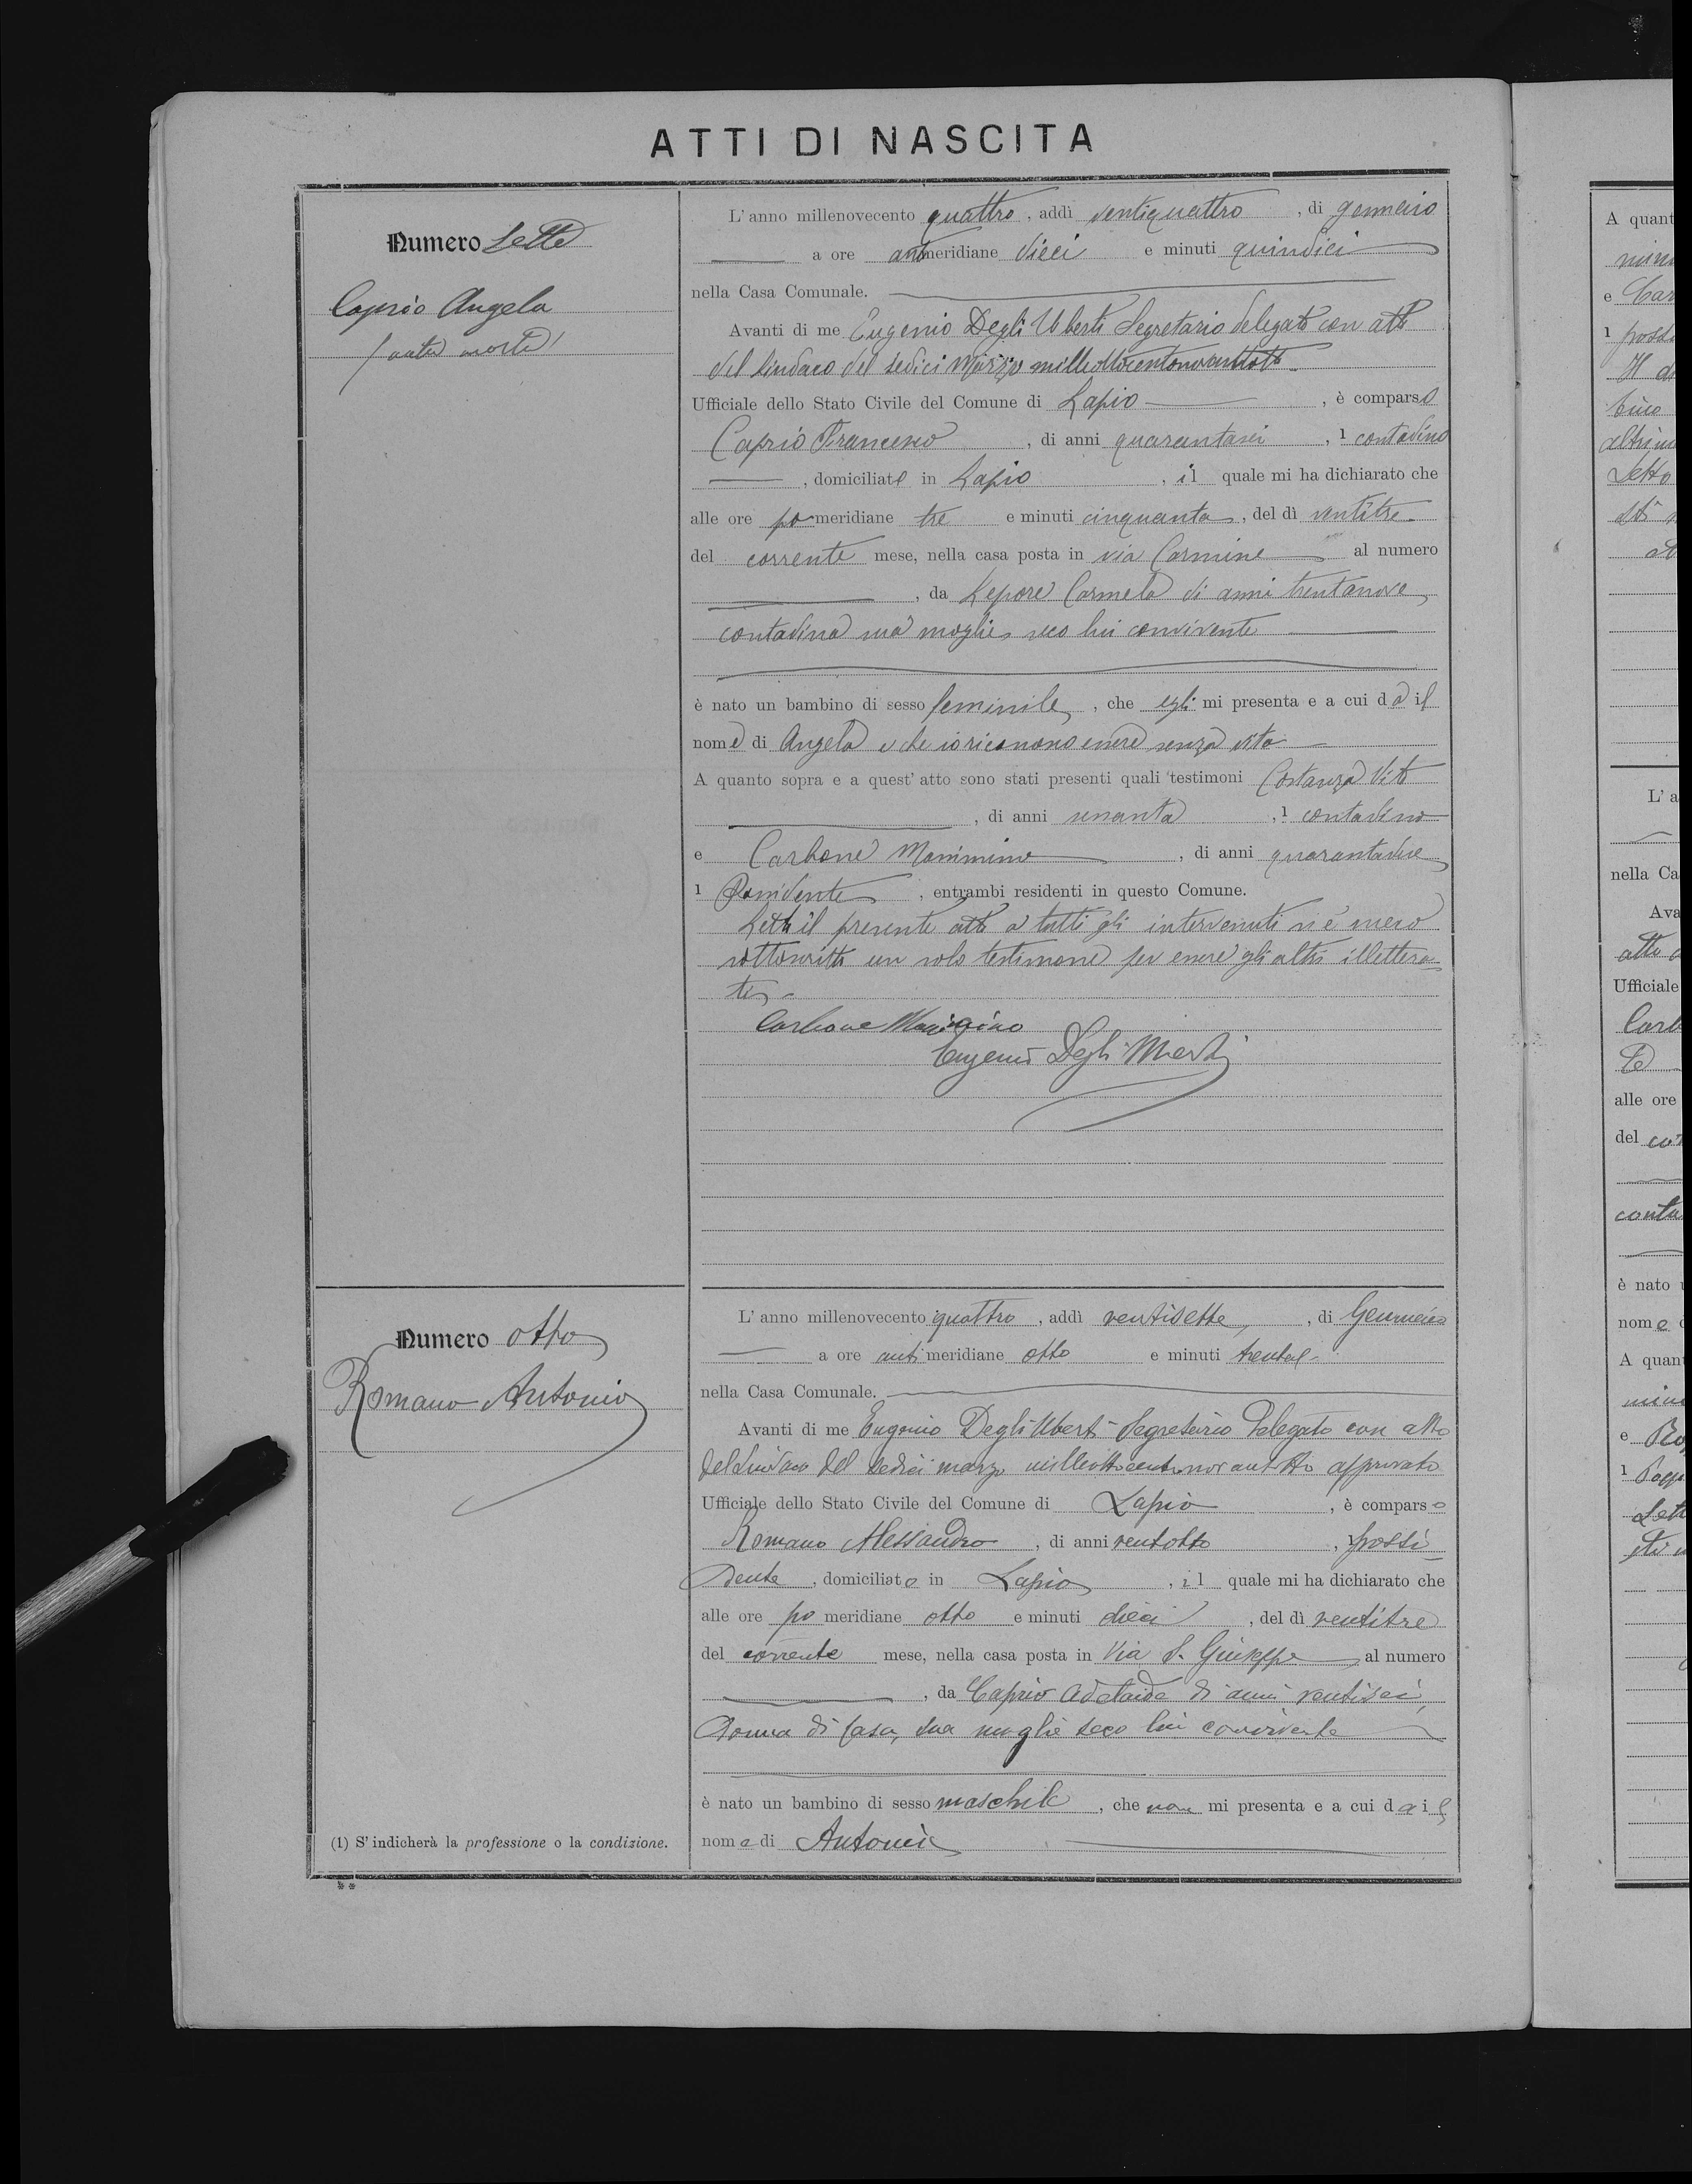 ATTI DI NASCITA
Numero Sette
Caprio Angela
(nata morta)
L'anno millenovecento quattro, addì ventiquattro, di gennaio
a ore antimeridiane dieci e minuti quindici
nella Casa Comunale.
Avanti di me Eugenio Degli Uberti Segretario delegato con atto
del Sindaco del sedici Marzo milleottocentonovantotto
Ufficiale dello Stato Civile del Comune di Lapio, è comparso
Caprio Francesco, di anni quarantasei, 1 contadino
, domiciliato in Lapio, il quale mi ha dichiarato che
alle ore pomeridiane tre e minuti cinquanta, del dì ventitre
del corrente mese, nella casa posta in via Carmine al numero
, da Lepore Carmela di anni trentanove
contadina sua moglie, seco lui convivente
è nato un bambino di sesso feminile, che egli mi presenta e a cui dà il
nome di Angela e che io riconosco essere senza vita
A quanto sopra e a quest'atto sono stati presenti quali testimoni Costanza Vito
, di anni sessanta, 1 contadino
e Carbone Massimino, di anni quarantadue
1 Possidente, entrambi residenti in questo Comune.
Letto il presente atto a tutti gli intervenuti si è meco
sottoscritto un solo testimone per essere gli altri illettera
ti
Carbone Massimino
Eugenio Degli Uberti
Numero otto
Romano Antonio
L'anno millenovecento quattro, addì ventisette, di Gennaio
a ore antimeridiane otto e minuti trenta
nella Casa Comunale.
Avanti di me Eugenio Degli Uberti Segretario Delegato con atto
del Sindaco del sedici marzo milleottocentonovantotto approvato
Ufficiale dello Stato Civile del Comune di Lapio, è comparso
Romano Alessandro, di anni ventotto, 1 possi
dente, domiciliato in Lapio, il quale mi ha dichiarato che
alle ore pomeridiane otto e minuti dieci, del dì ventitre
del corrente mese, nella casa posta in Via S. Giuseppe al numero
, da Caprio Adelaide di anni ventisei,
donna di casa, sua moglie seco lui convivente
è nato un bambino di sesso maschile, che non mi presenta e a cui da il
nome di Antonio
(1) S'indicherà la professione o la condizione.
**
A quant
e Car
1 possi
altrim
Letto
L'a
nella Ca
Ava
atto
Ufficiale
Carb
alle ore
del cor
conta
è nato
nome
A quan
e Ro
1